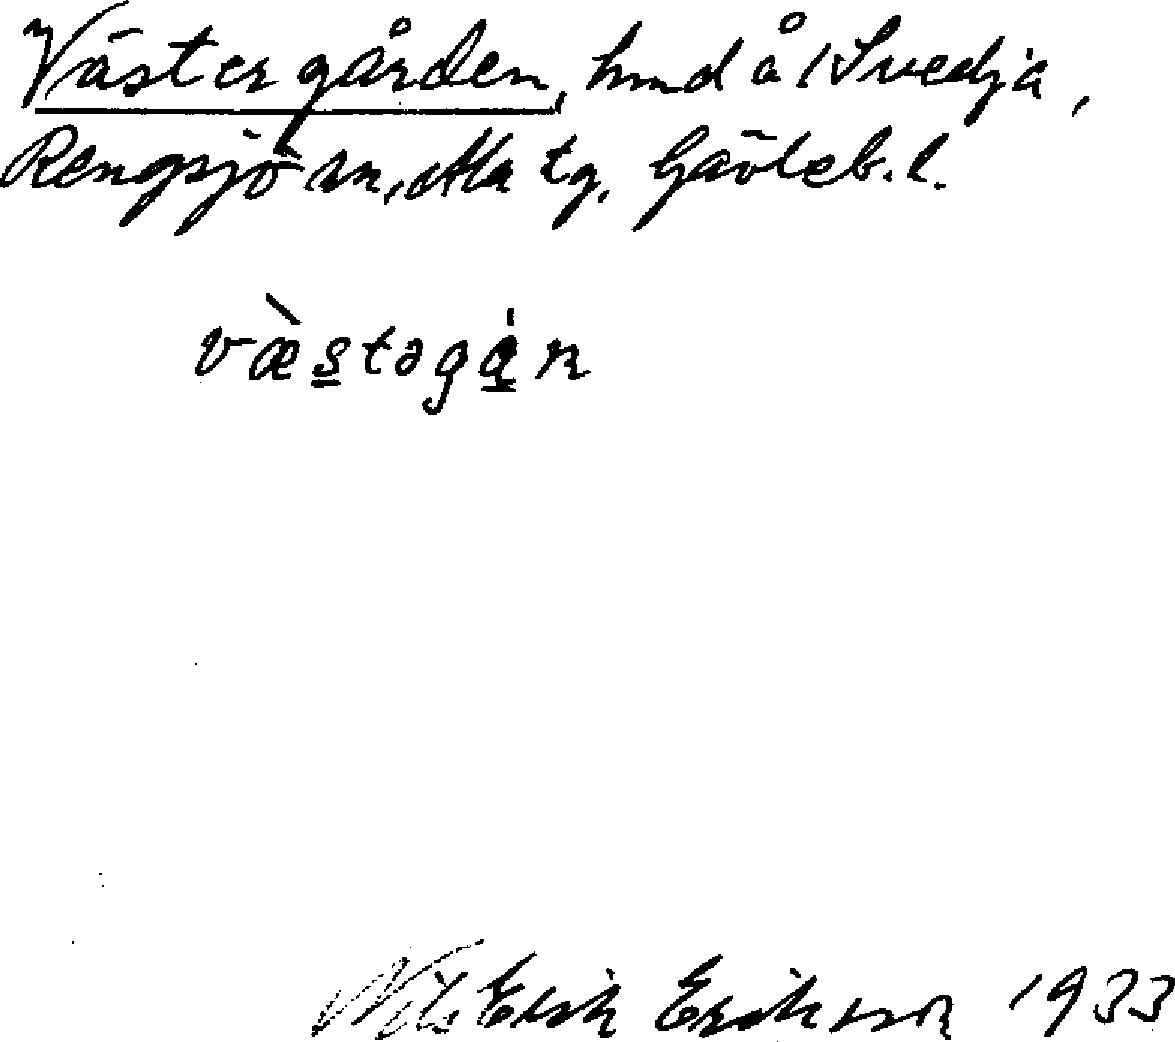 Västergården, hmd å 1 Svedja,
Rengsjö sn, Ala tg, Gävleb. l.
væ̀stəga̱̍n
Nils Erik Eriksson 1933